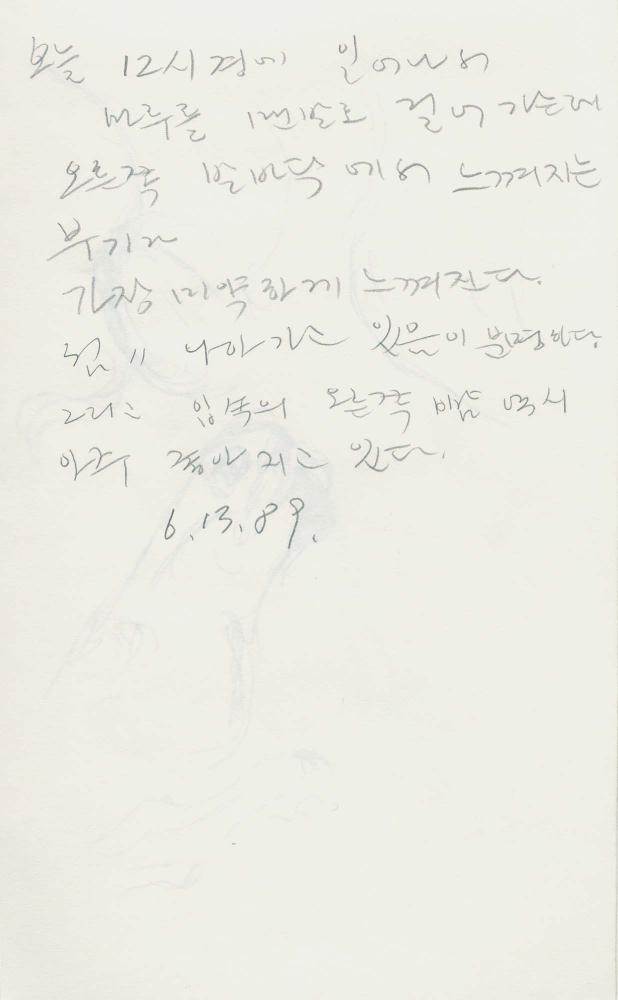 오늘 12시경에 일어나서
마루를 맨발로 걸어가는데
오른쪽 발바닥에서 느껴지는
부기가
가장 미약하게 느껴진다.
점〃 나아가고 있음이 분명하다.
그리고 입속의 오른쪽 비탈 역시
아주 좋아지고 있다.
6.13.89.